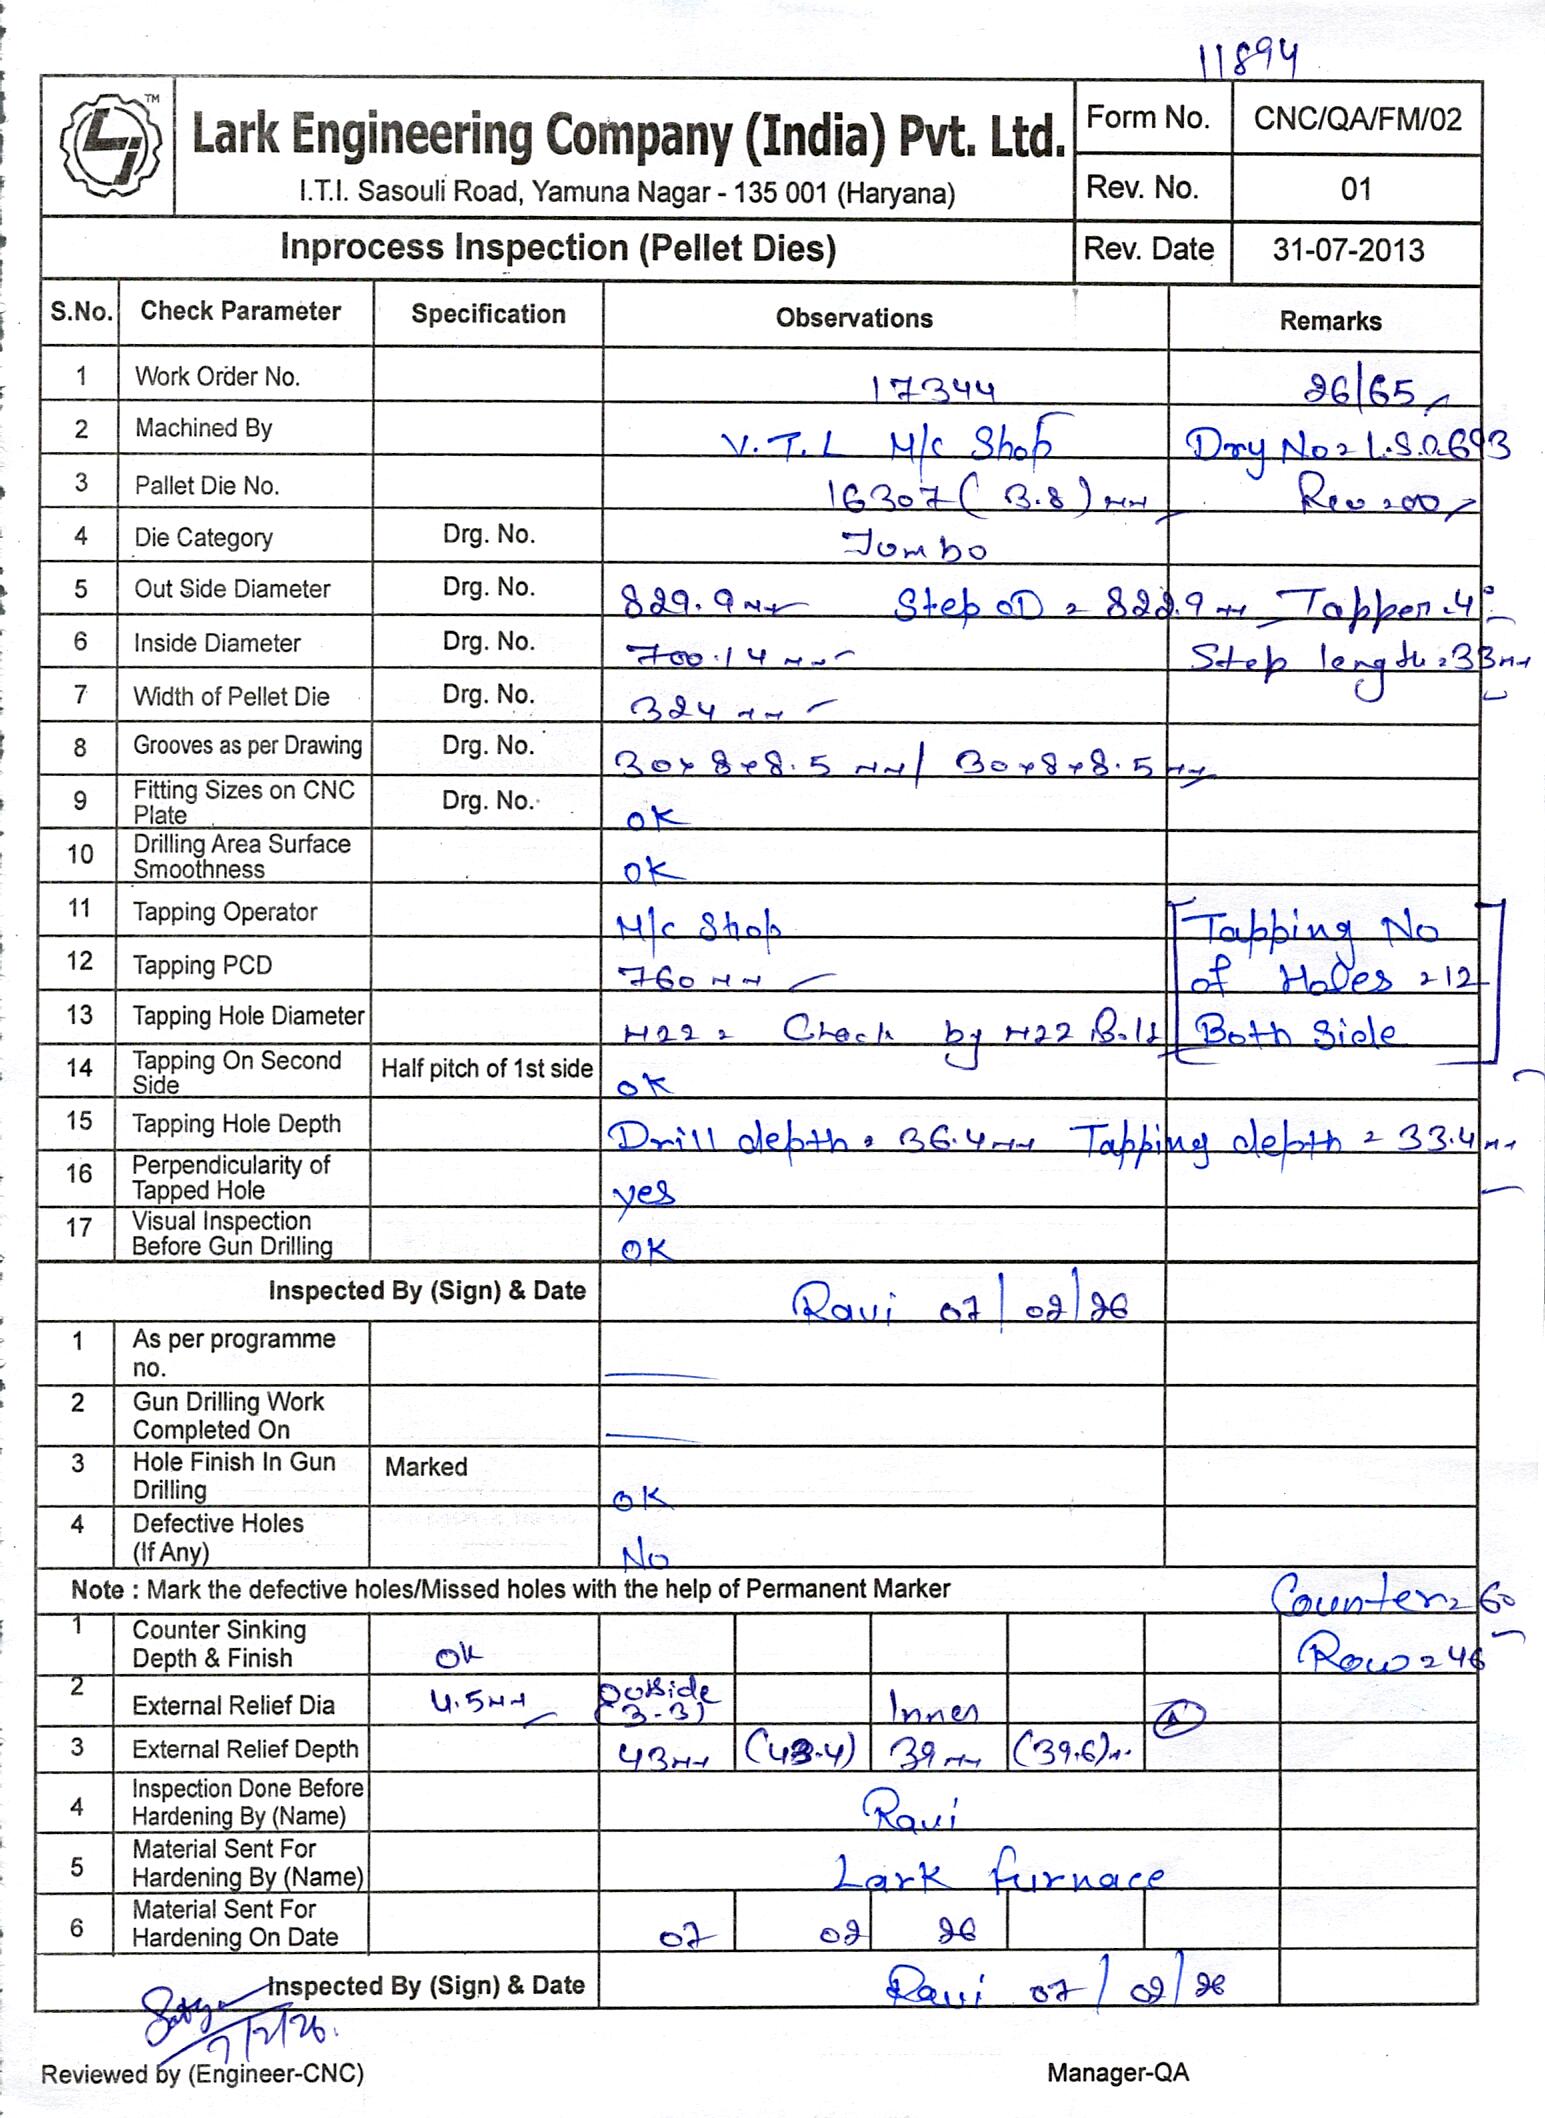 11894
TM
Lark Engineering Company (India) Pvt. Ltd.
I.T.I. Sasouli Road, Yamuna Nagar - 135 001 (Haryana)
Form No. CNC/QA/FM/02
Rev. No. 01
Inprocess Inspection (Pellet Dies) Rev. Date 31-07-2013
S.No. Check Parameter Specification Observations Remarks
1 Work Order No. 17344 26/65
2 Machined By V.T.L M/c Shop Drg No = L.S.0.693
3 Pallet Die No. 16307 (3.8) mm Rev = 00
4 Die Category Drg. No. Jumbo
5 Out Side Diameter Drg. No. 829.9 mm Step OD = 822.9 mm Tapper .4°
6 Inside Diameter Drg. No. 700.14 mm Step length = 33 mm
7 Width of Pellet Die Drg. No. 324 mm
8 Grooves as per Drawing Drg. No. 30x8x8.5 mm / 30x8x8.5 mm
9 Fitting Sizes on CNC Plate Drg. No. OK
10 Drilling Area Surface Smoothness OK
11 Tapping Operator M/c Shop Tapping No
12 Tapping PCD 760 mm of Holes = 12
13 Tapping Hole Diameter M22 = Check by M22 Bolt Both Side
14 Tapping On Second Side Half pitch of 1st side OK
15 Tapping Hole Depth Drill depth = 36.4 mm Tapping depth = 33.4 mm
16 Perpendicularity of Tapped Hole yes
17 Visual Inspection Before Gun Drilling OK
Inspected By (Sign) & Date Ravi 07/02/26
1 As per programme no.
2 Gun Drilling Work Completed On
3 Hole Finish In Gun Drilling Marked OK
4 Defective Holes (If Any) No
Note : Mark the defective holes/Missed holes with the help of Permanent Marker Counter = 60
1 Counter Sinking Depth & Finish OK Row = 46
2 External Relief Dia 4.5 mm Outside (3-3) Inner A
3 External Relief Depth 43 mm (43.4) 39 mm (39.6) m
4 Inspection Done Before Hardening By (Name) Ravi
5 Material Sent For Hardening By (Name) Lark furnace
6 Material Sent For Hardening On Date 07 02 26
Inspected By (Sign) & Date Ravi 07/02/26
7/2/26.
Reviewed by (Engineer-CNC) Manager-QA